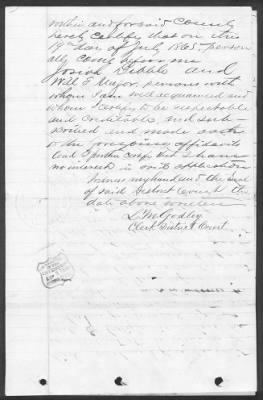 within and for said County
hereby certify that on this
19th day of July 1865 person
ally came before me
Josiah and
Will E Major, persons with
whom I am well acquainted and
whom I certify to be respectable
and creditable, and sub-
scribed and made oath
to the foregoing affidavits
And I further certify that I have
no interest in this application
Witness my hand and the seal
of said District Court the
date above written
L. M. Godley
Clerk District Court